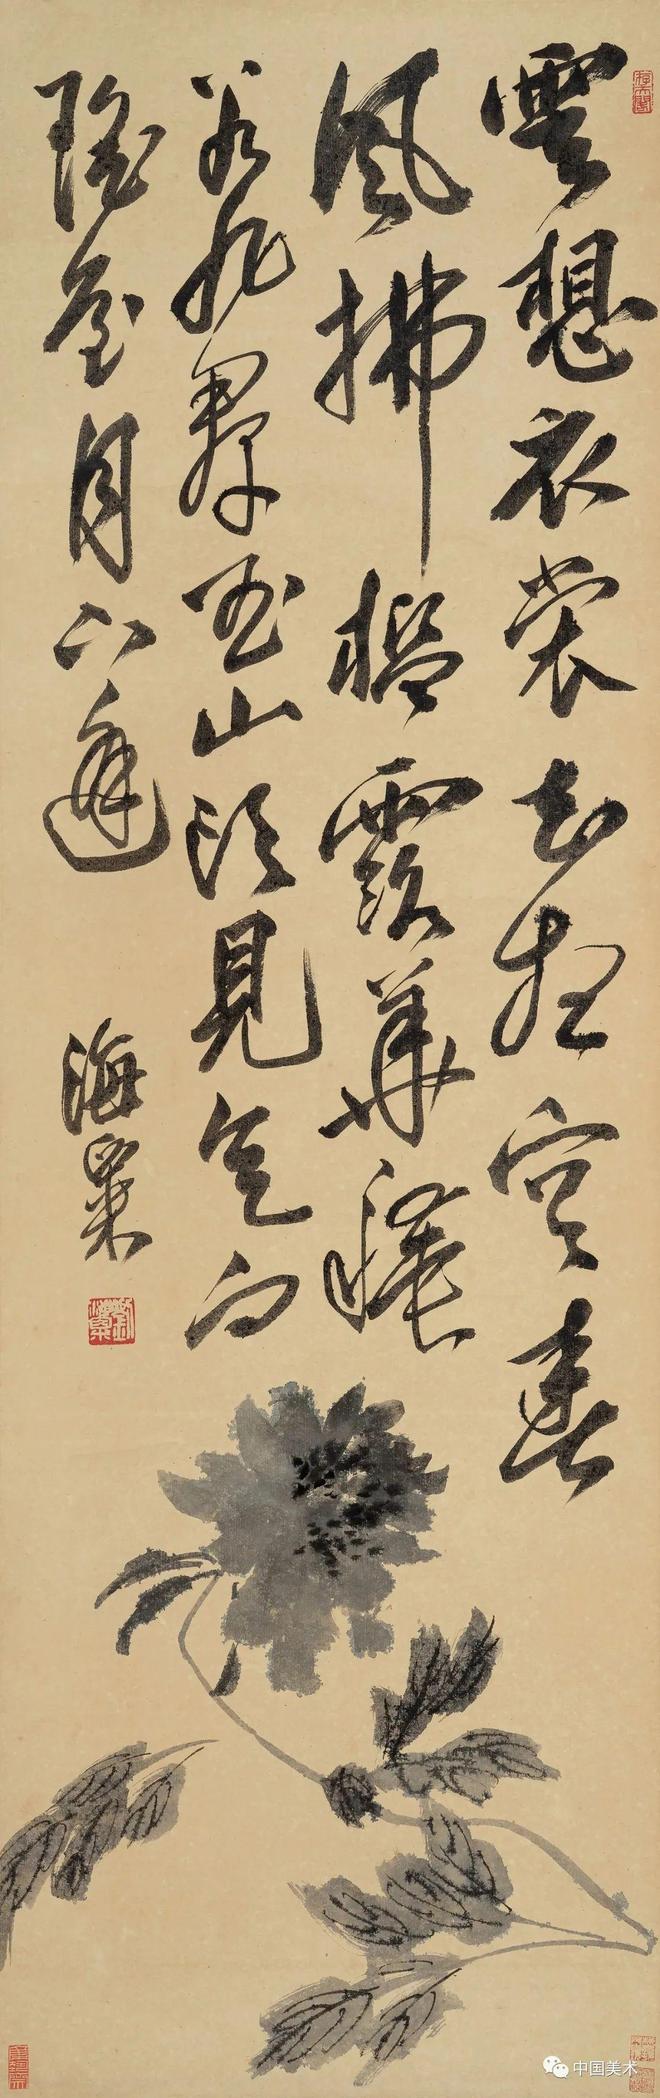 雲想衣裳花想容春
風拂檻露華穠
若非羣玉山頭見會向
瑤臺月下逢
海粟
劉海粟
中国美术